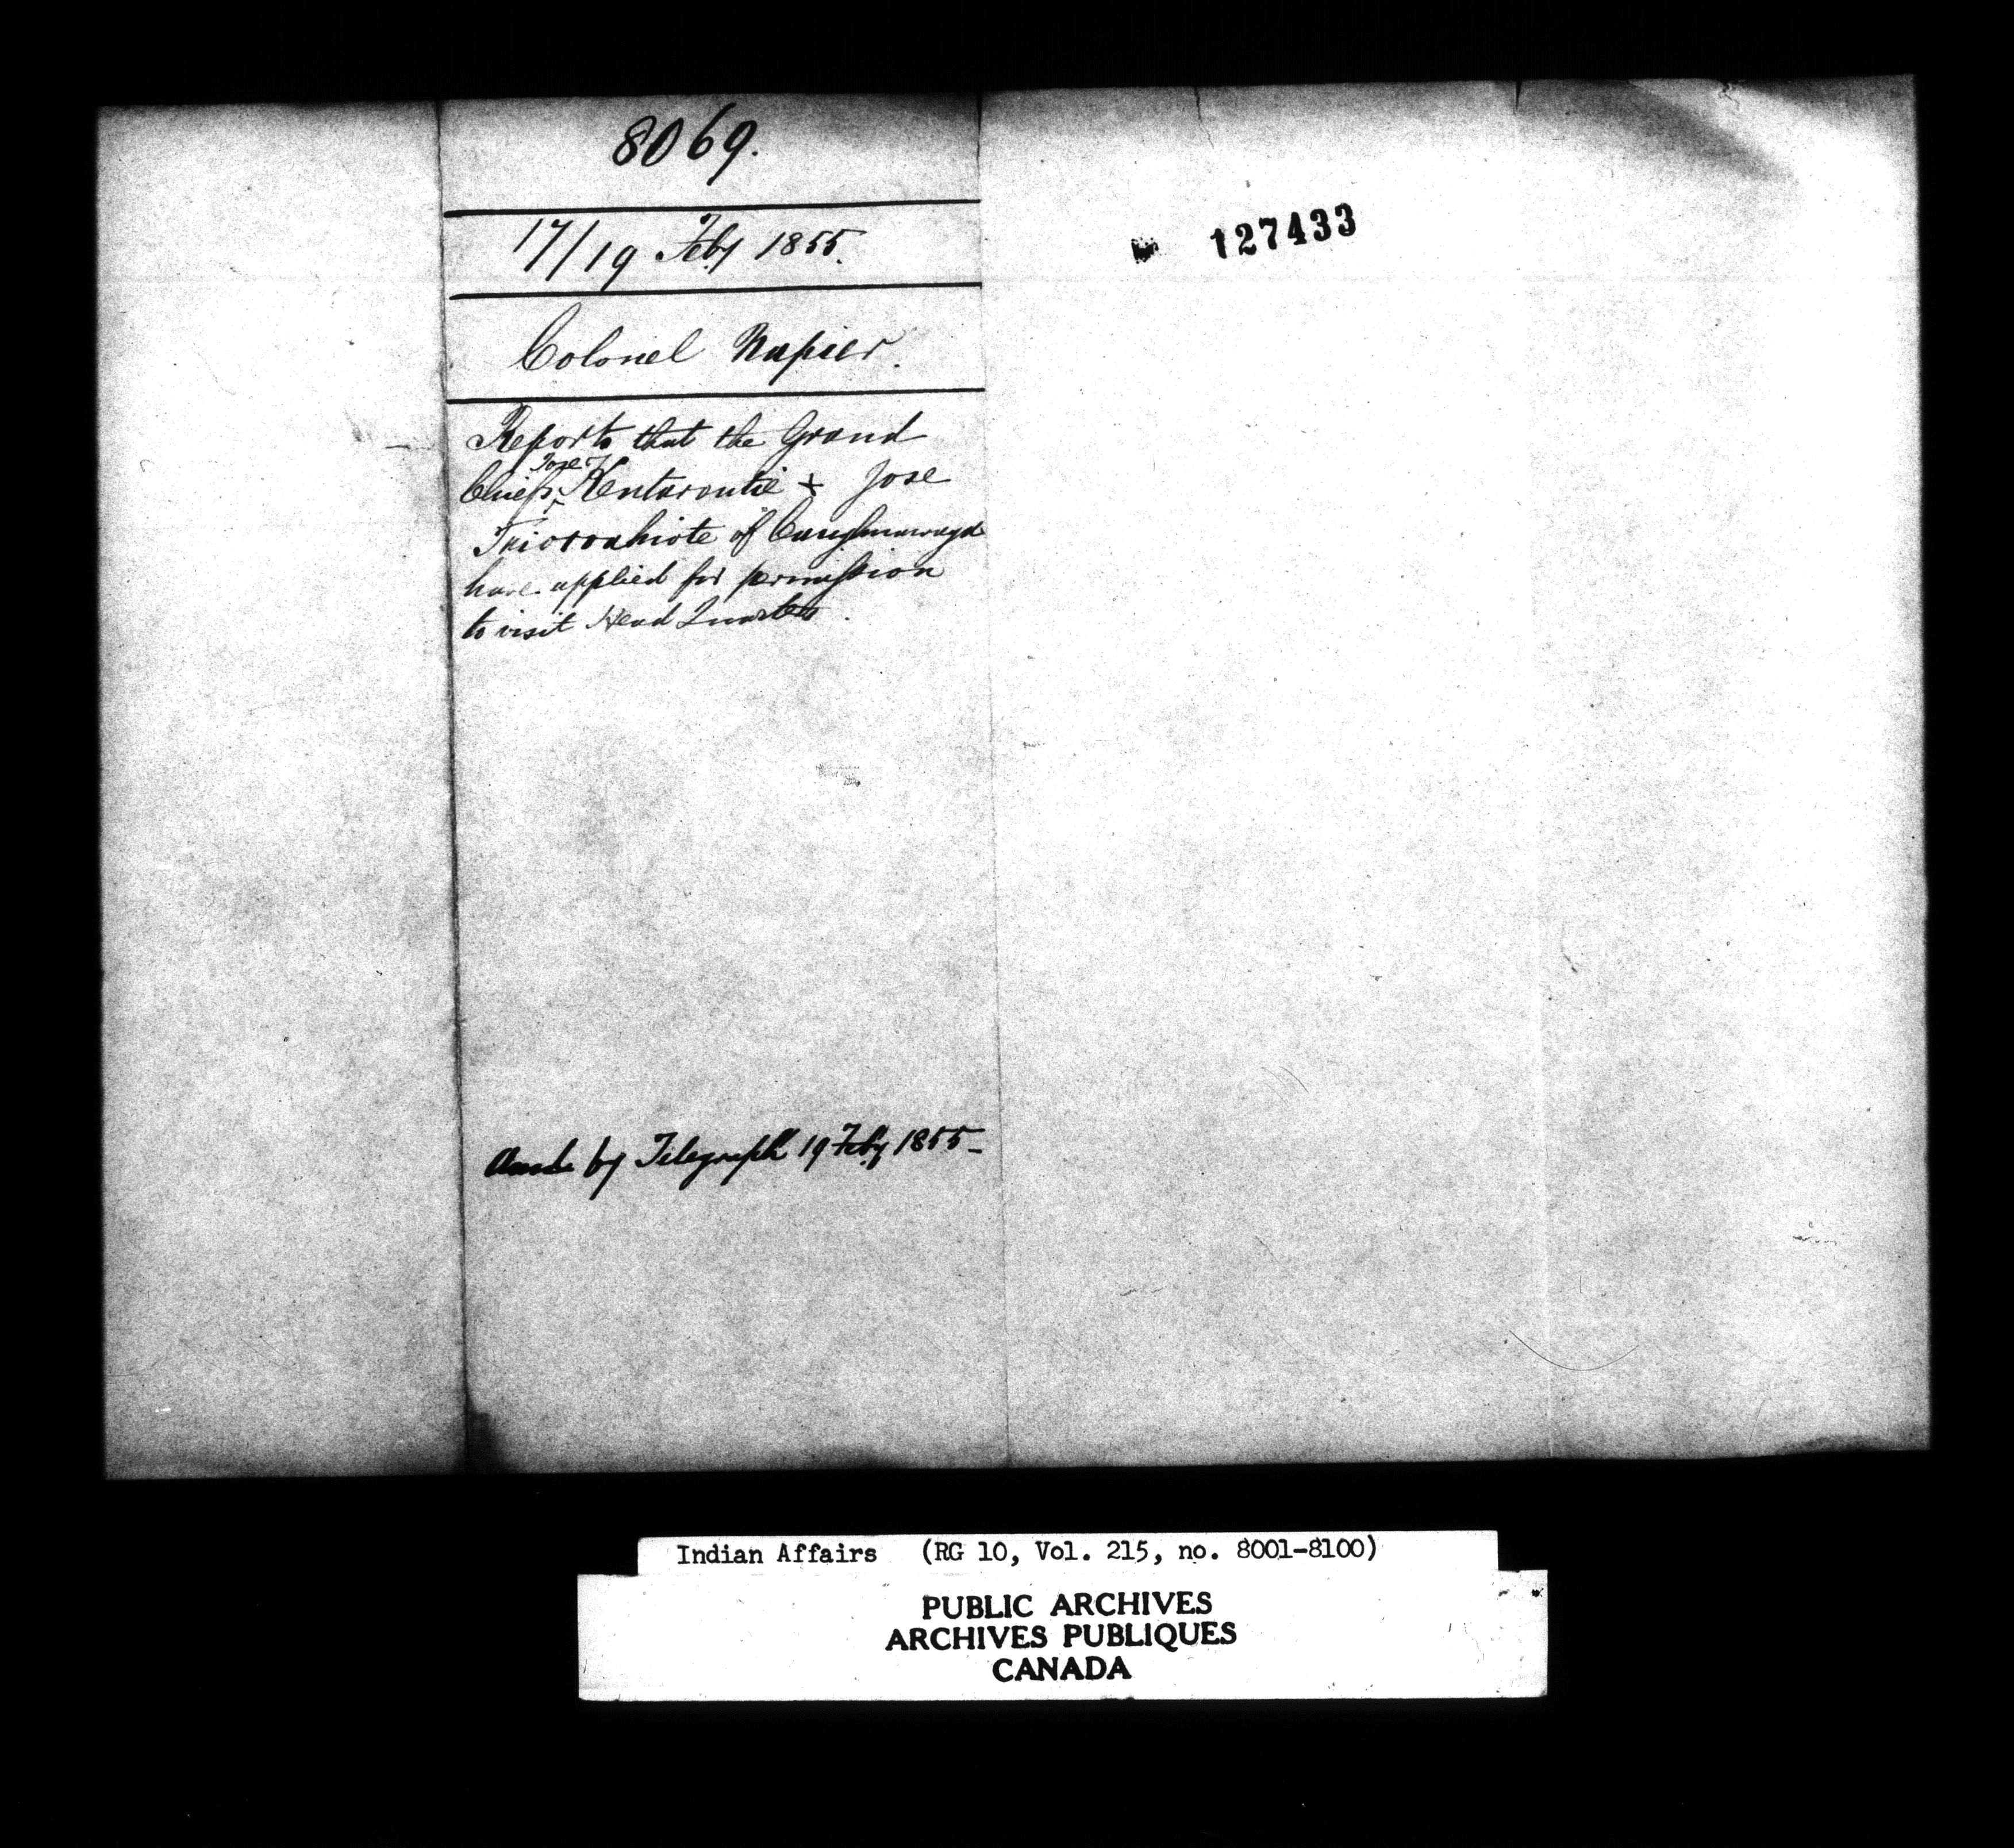 8069.
17/19 Feby 1855.
Colonel Napier.
Reports that the Grand
Jose
Chiefs Kentarontie + Jose
of Caughnawaga
have applied for permission
to visit Head Quarters.
by Telegraph 19 Feby 1855-
127433
Indian Affairs (RG 10, Vol. 215, no. 8001-8100)
PUBLIC ARCHIVES
ARCHIVES PUBLIQUES
CANADA